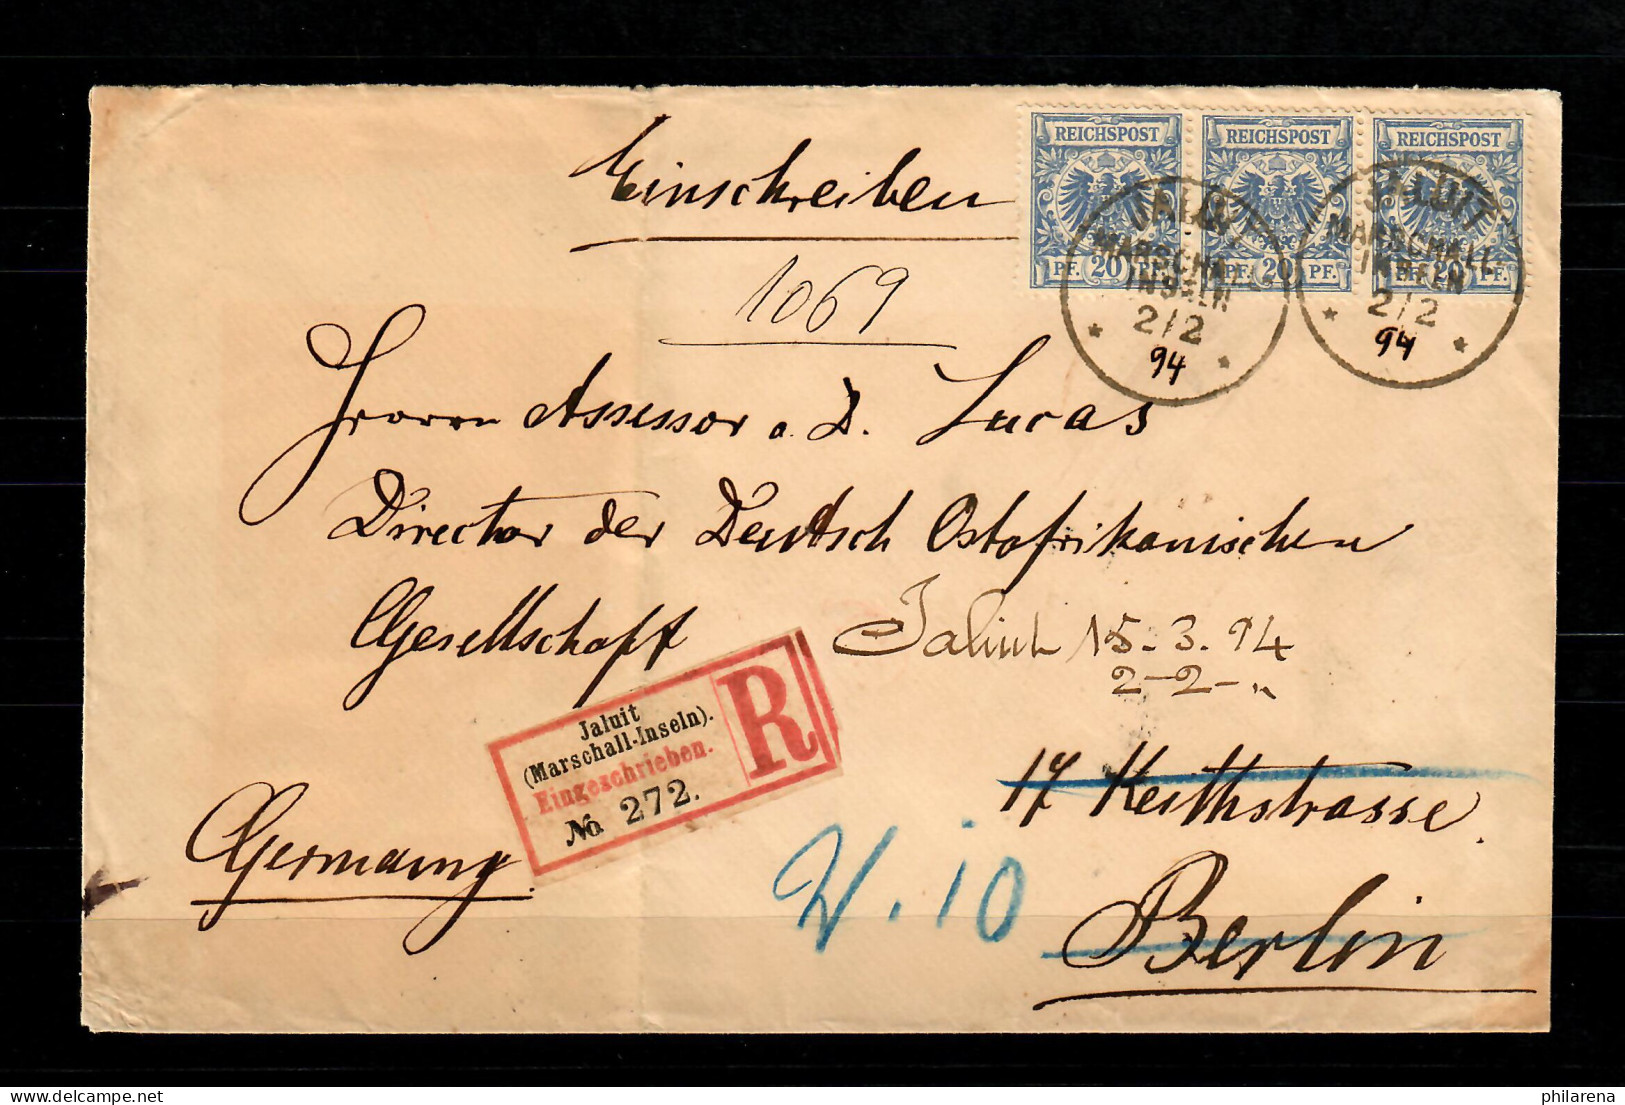 Einschreiben
1069
REICHSPOST REICHSPOST REICHSPOST
PF. 20 PF. PF. 20 PF. PF. 20 PF.
JALUIT
MARSCHALL-
INSELN
2/2
94
JALUIT
MARSCHALL-
INSELN
2/2
94
Herrn Assessor a. D. Lucas
Director der Deutsch Ostafrikanischen
Gesellschaft
Jaluit 15.3.94
2-2-"
Jaluit
(Marschall-Inseln).
Eingeschrieben.
No 272.
R
17 Keithstrasse.
Germany.
W. 10
Berlin
philarena